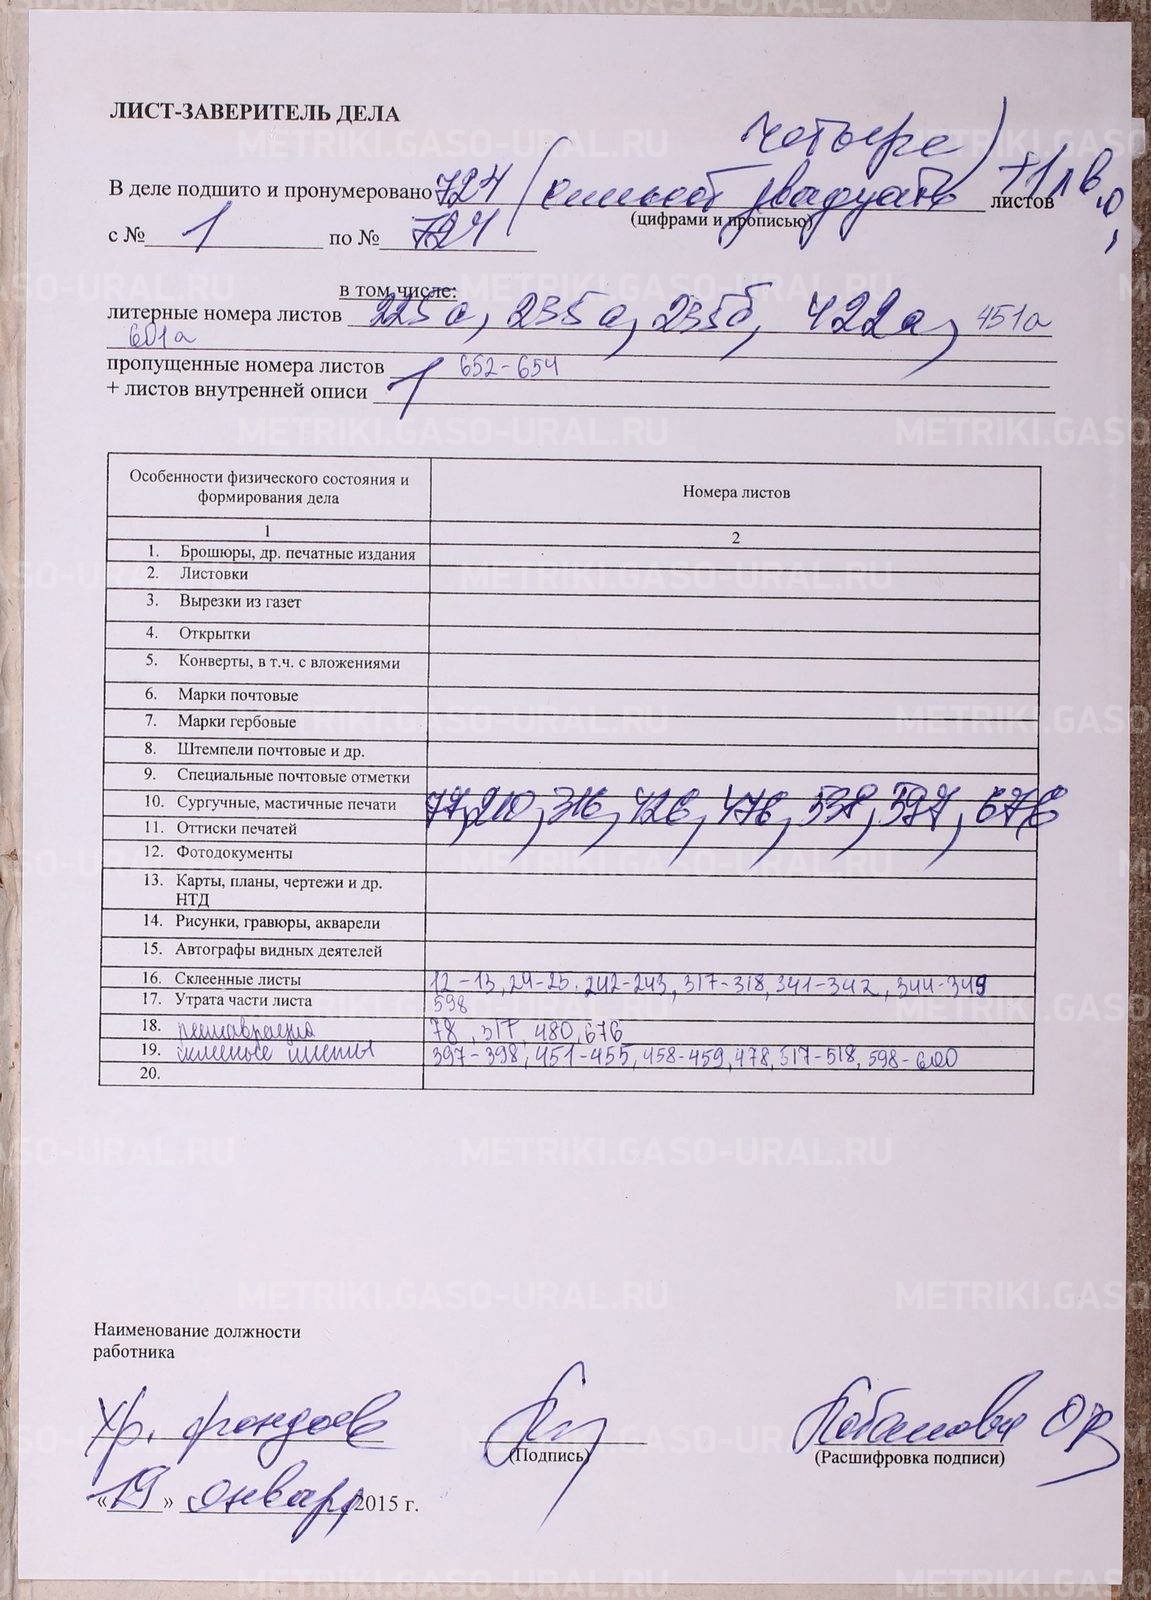 ЛИСТ-ЗАВЕРИТЕЛЬ ДЕЛА
четыре)
В деле подшито и пронумеровано 724 (семьсот двадцать листов +1л в.о,
(цифрами и прописью)
с № 1 по № 724
в том числе:
литерные номера листов 225а, 235а, 235б, 422а, 451а
601а
пропущенные номера листов 652-654
+ листов внутренней описи 1
Особенности физического состояния и формирования дела Номера листов
1 2
1. Брошюры, др. печатные издания
2. Листовки
3. Вырезки из газет
4. Открытки
5. Конверты, в т.ч. с вложениями
6. Марки почтовые
7. Марки гербовые
8. Штемпели почтовые и др.
9. Специальные почтовые отметки
10. Сургучные, мастичные печати 77, 210, 316, 426, 476, 538, 597, 676
11. Оттиски печатей
12. Фотодокументы
13. Карты, планы, чертежи и др.
НТД
14. Рисунки, гравюры, акварели
15. Автографы видных деятелей
16. Склеенные листы 12-13, 24-25. 242-243, 317-318, 341-342, 344-349
17. Утрата части листа 598
18. реставрация 78, 317, 480, 676
19. склеенные листы 397-398, 451-455, 458-459, 478, 517-518, 598-600
20.
Наименование должности
работника
Хр. фондов
(Подпись)
(Расшифровка подписи)
«19» января 2015 г.
METRIKI.GASO-URAL.RU